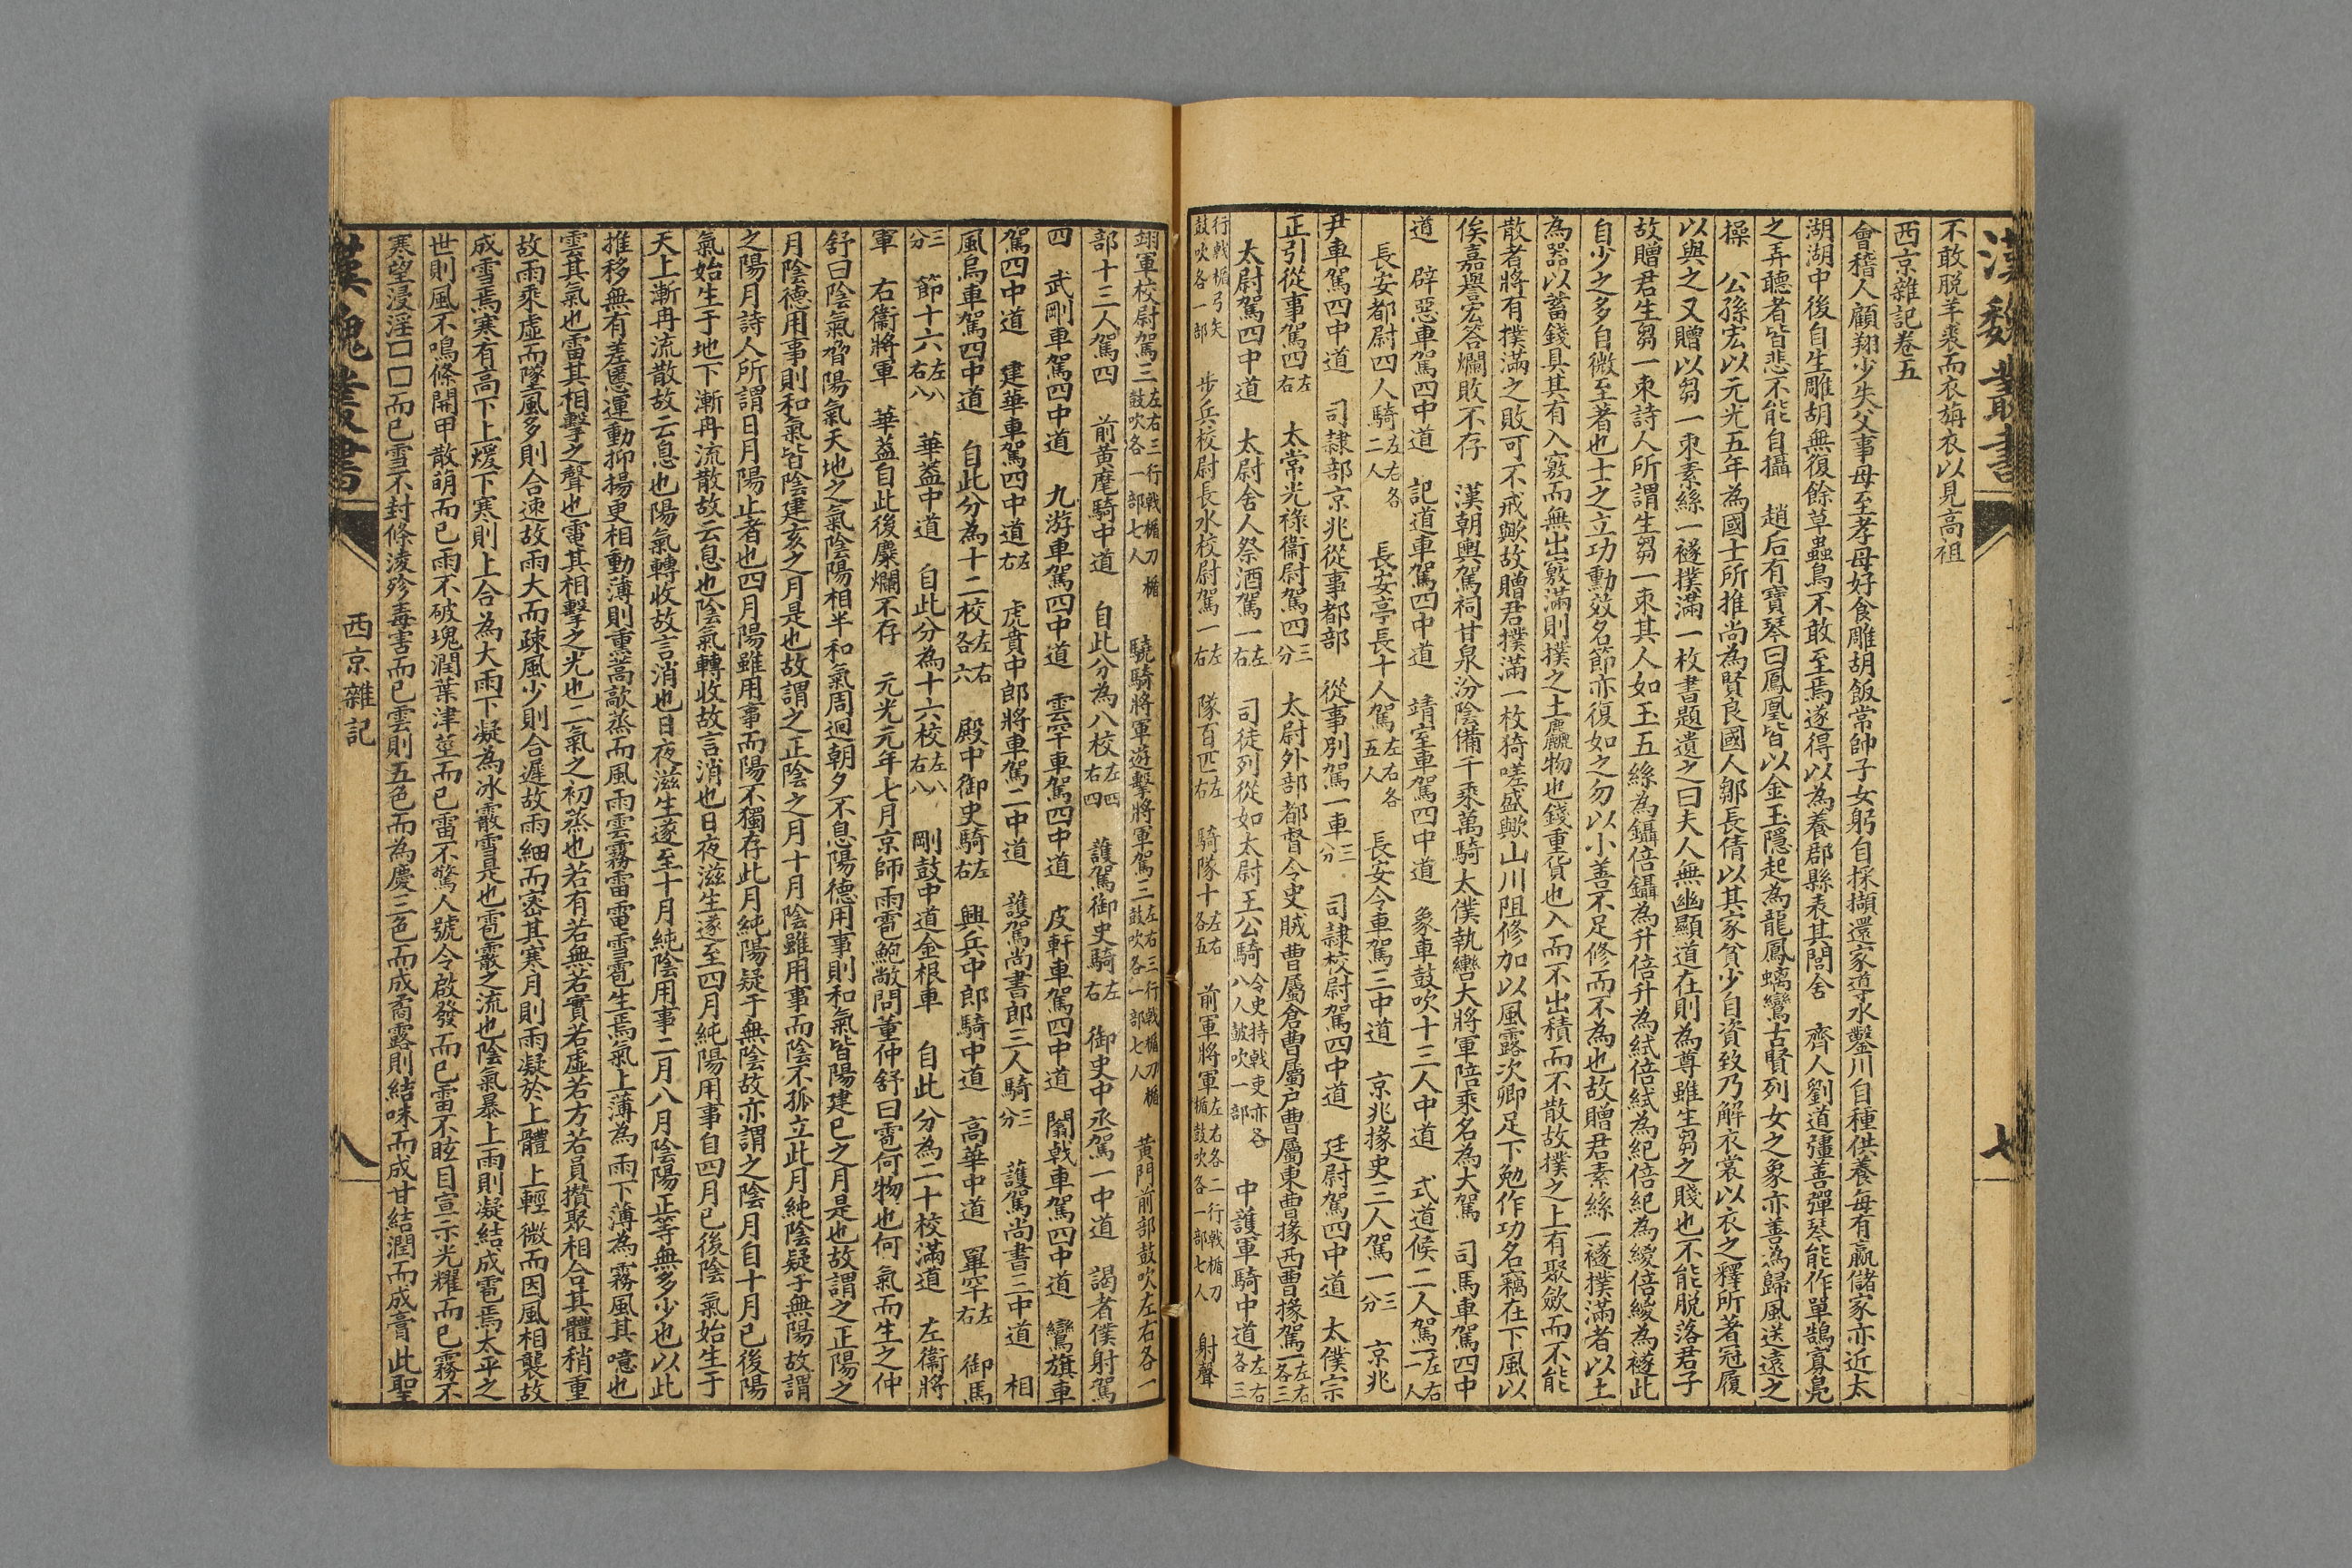 漢魏叢書
七
不敢脱羊裘而衣旃衣以見高祖
西京雜記卷五
會稽人顧翔少失父事母至孝母好食雕胡飯常帥子女躬自採擷還家導水鑿川自種供養每有嬴儲家亦近太
湖湖中後自生雕胡無復餘草蟲鳥不敢至焉遂得以為養郡縣表其閭舍　齊人劉道彊善彈琴能作單鵠寡鳧
之弄聽者皆悲不能自攝　趙后有寶琴曰鳳凰皆以金玉隱起為龍鳳螭鸞古賢列女之象亦善為歸風送遠之
操　公孫宏以元光五年為國士所推尚為賢良國人鄒長倩以其家貧少自資致乃解衣裳以衣之釋所著冠履
以與之又贈以芻一束素絲一襚撲滿一枚書題遺之曰夫人無幽顯道在則為尊雖生芻之賤也不能脱落君子
故贈君生芻一束詩人所謂生芻一束其人如玉五絲為鑷倍鑷為升倍升為紽倍紽為紀倍紀為緵倍緵為襚此
自少之多自微至著也士之立功勳效名節亦復如之勿以小善不足修而不為也故贈君素絲一襚撲滿者以土
為器以蓄錢具其有入竅而無出竅滿則撲之土麤物也錢重貨也入而不出積而不散故撲之士有聚斂而不能
散者將有撲滿之敗可不戒歟故贈君撲滿一枚猗嗟盛歟山川阻修加以風露次卿足下勉作功名竊在下風以
俟嘉譽宏答爛敗不存　漢朝輿駕祠甘泉汾陰備千乘萬騎太僕執轡大將軍陪乘名為大駕　司馬車駕四中
道　辟惡車駕四中道　記道車駕四中道　靖室車駕四中道　象車鼓吹十三人中道　式道候二人駕一左右一人
長安都尉四人騎左右各二人　長安亭長十人駕左右各五人　長安令車駕三中道　京兆掾史三人駕一三分　京兆
尹車駕四中道　司隸部京兆從事都部　從事別駕一車三分　司隸校尉駕四中道　廷尉駕四中道　太僕宗
正引從事駕四左右　太常光祿衞尉駕四三分　太尉外部都督令史賊曹屬倉曹屬户曹屬東曹掾西曹掾駕一左右各三
太尉駕四中道　太尉舍人祭酒駕一左右　司徒列從如太尉王公騎令史持戟吏亦各八人鼓吹一部　中護軍騎中道左右各三
行戟楯弓矢鼓吹各一部　步兵校尉長水校尉駕一左右　隊百匹左右　騎隊十左右各五　前軍將軍左右各二行戟楯刀楯鼓吹各一部七人　射聲
翊軍校尉駕三左右三行戟楯刀楯鼓吹各一部七人　驍騎將軍遊擊將軍駕三左右三行戟楯刀楯鼓吹各一部七人　黄門前部鼓吹左右各一
部十三人駕四　前黄麾騎中道　自此分為八校左四右四　護駕御史騎左右　御史中丞駕一中道　謁者僕射駕
四　武剛車駕四中道　九游車駕四中道　雲䍐車駕四中道　皮軒車駕四中道　闟戟車駕四中道　鸞旗車
駕四中道　建華車駕四中道左右　虎賁中郎將車駕二中道　護駕尚書郎三人騎三分　護駕尚書三中道　相
風烏車駕四中道　自此分為十二校左右各六　殿中御史騎左右　興兵中郎騎中道　高華中道　畢䍐左右　御馬
三分　節十六左八右八　華葢中道　自此分為十六校左八右八　剛鼓中道金根車　自此分為二十校滿道　左衞將
軍　右衞將軍　華葢自此後麋爛不存　元光元年七月京師雨雹鮑敞問董仲舒曰雹何物也何氣而生之仲
舒曰陰氣脅陽氣天地之氣陰陽相半和氣周迴朝夕不息陽德用事則和氣皆陽建巳之月是也故謂之正陽之
月陰德用事則和氣皆陰建亥之月是也故謂之正陰之月十月陰雖用事而陰不孤立此月純陰疑于無陽故謂
之陽月詩人所謂日月陽止者也四月陽雖用事而陽不獨存此月純陽疑于無陰故亦謂之陰月自十月已後陽
氣始生于地下漸冉流散故云息也陰氣轉收故言消也日夜滋生遂至四月純陽用事自四月已後陰氣始生于
天上漸冉流散故云息也陽氣轉收故言消也日夜滋生遂至十月純陰用事二月八月陰陽正等無多少也以此
推移無有差慝運動抑揚更相動薄則熏蒿歊蒸而風雨雲霧雷電雪雹生焉氣上薄為雨下薄為霧風其噫也
雲其氣也雷其相擊之聲也電其相擊之光也二氣之初蒸也若有若無若實若虛若方若員攅聚相合其體稍重
故雨乘虛而墜風多則合速故雨大而疎風少則合遲故雨細而密其寒月則雨凝於上體上輕微而因風相襲故
成雪焉寒有高下上煖下寒則上合為大雨下凝為冰霰雪是也雹霰之流也陰氣暴上雨則凝結成雹焉太平之
世則風不鳴條開甲散萌而已雨不破塊潤葉津莖而已雷不驚人號令啟發而已電不眩目宣示光耀而已霧不
寒望浸淫囗囗而已雪不封條淩殄毒害而已雲則五色而為慶三色而成矞露則結味而成甘結潤而成膏此聖
漢魏叢書
西京雜記
八